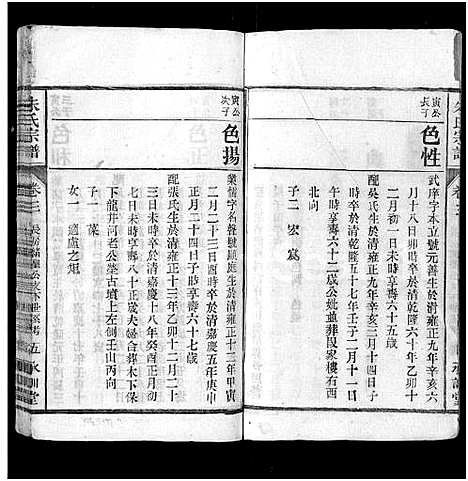 寅公長子
色性
武庠字本立號元善生於清雍正九年辛亥六
月十八日辰時卒於清乾隆六十年乙卯十
二月初一日未時享壽六十五歲
配吳氏生於清雍正九年辛亥三月十四日子
時卒於清乾隆五十七年壬子二月十一日
午時享壽六十二歲公妣並葬段家樓右酉
北向
子二 宏 為
寅公次子
色揚
業儒字名聲號顯庭生於清雍正十二年甲寅
二月二十三日酉時卒於清嘉慶五年庚申
正月二十四日子時享壽六十七歲
配張氏生於清雍正十三年乙卯十二月二十
三日未時卒於清嘉慶十八年癸酉正月初
七日未時享壽八十正歲夫婦合葬木下保
下龍井河老公塋古墳上左側壬山丙向
子一 菜
女一 適盧之烜
朱氏宗譜
卷三
五
永訓堂